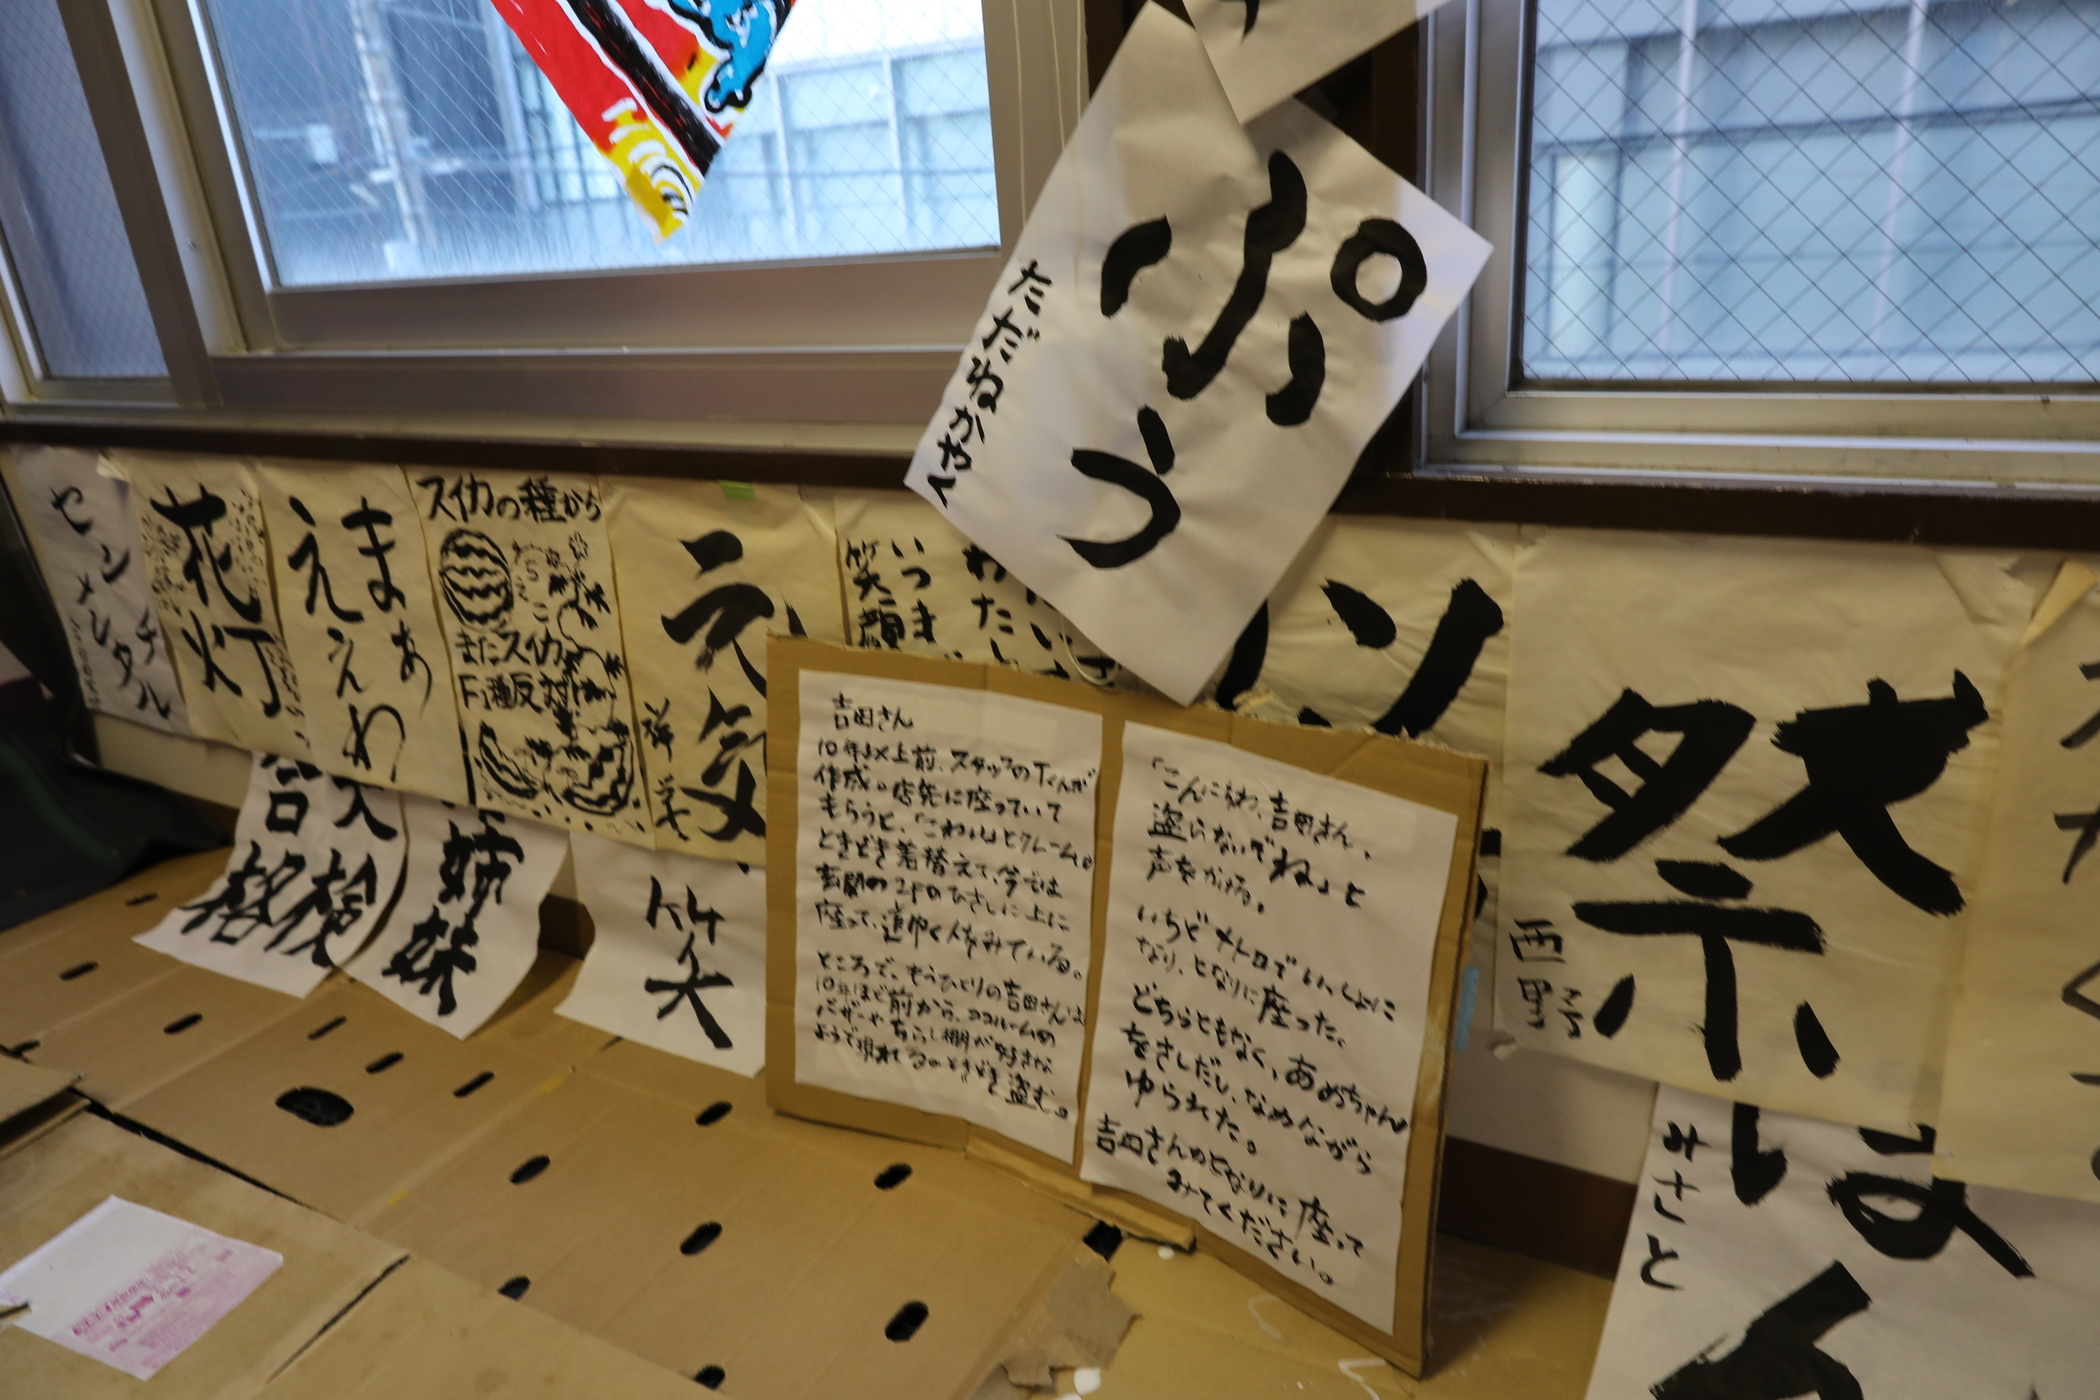 センチ
メンタル
花
灯
まぁ
ええわ
スイカの種から
またスイカ
F1種反対
元気
祥
いつま
笑顔
わたし
ぷぅ
ただねかやく
ン
祭
西野
検
合格
姉妹
笑
吉田さん
10年以上前、スタッフのTくんが
作成。店先に座っていて
もらうと、「こわい」とクレーム。
ときどき着替えて、今では
玄関の2Fのひさしに上に
座って、道ゆく人をみている。
ところで、もうひとりの吉田さんは
10年ほど前から、ココルームの
バザーやちらし棚が好きな
ようで現れる。ときどき盗む。
「こんにちわ、吉田さん、
盗らないでね」と
声をかける。
いちど メトロでいっしょに
なり、となりに座った。
どちらともなく、あめちゃん
をさしだし、なめながら
ゆられた。
吉田さんのとなりに座って
みてください。
みさと